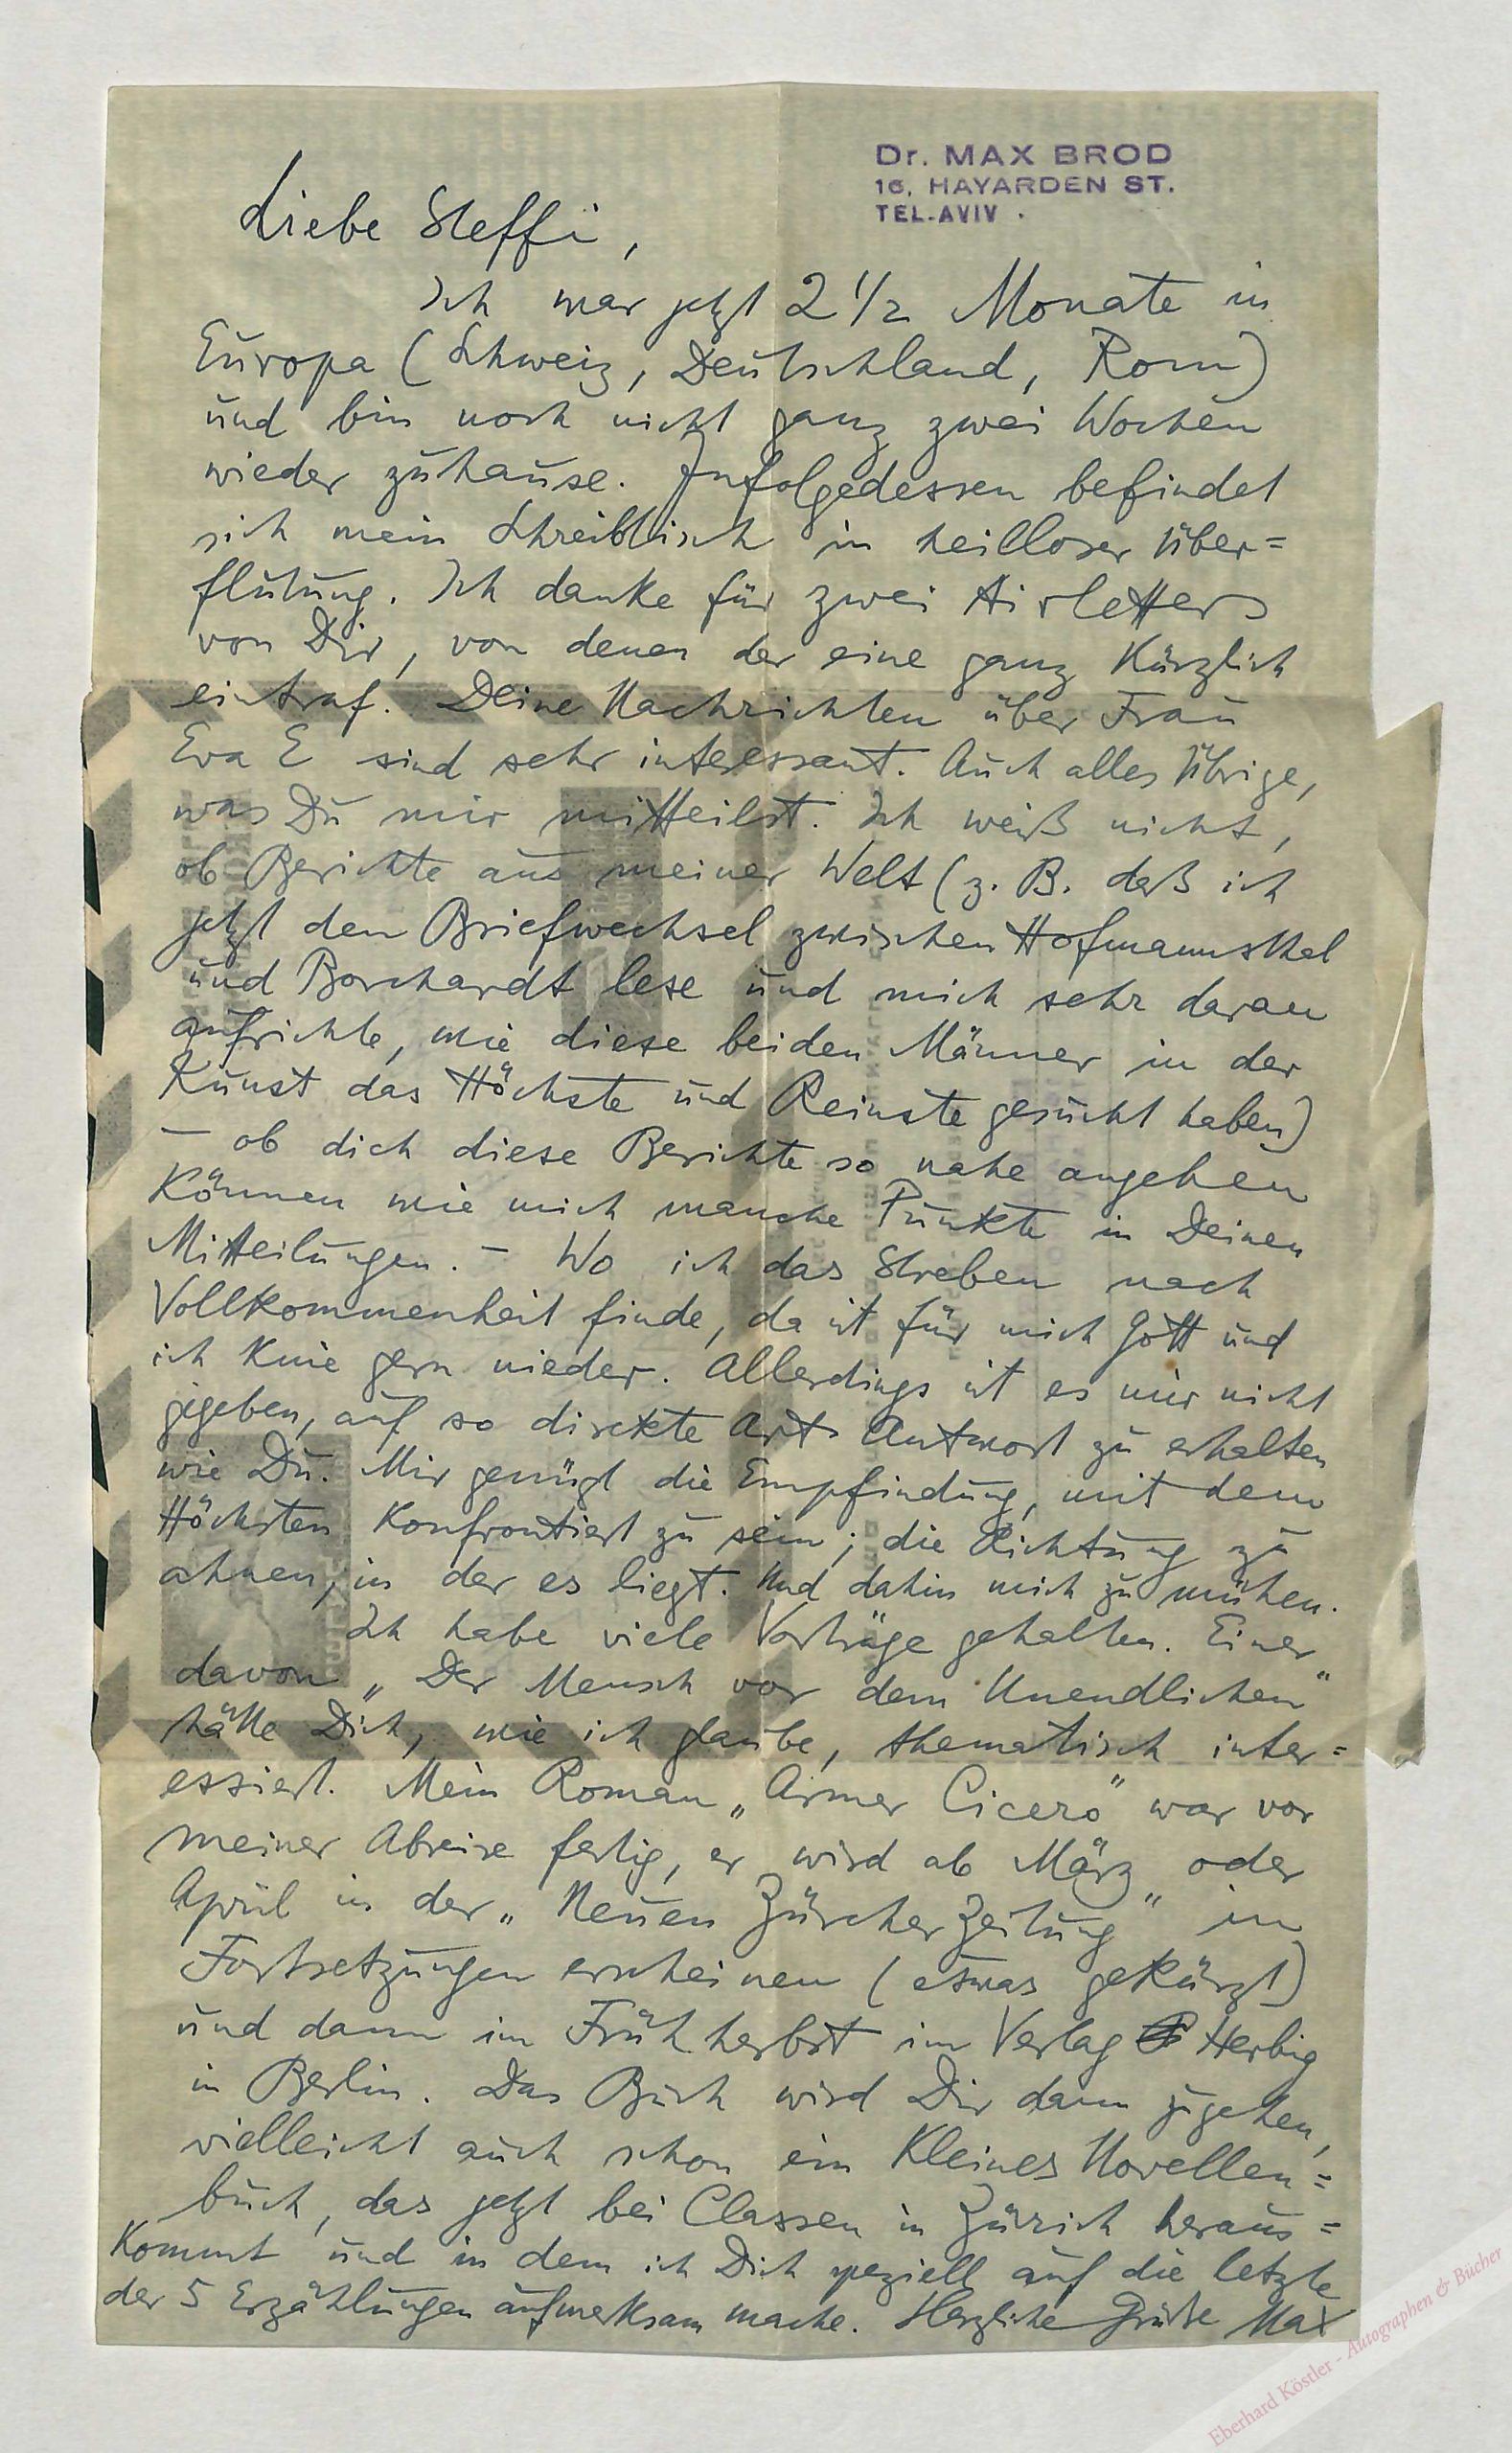 Dr. MAX BROD
16, HAYARDEN ST.
TEL-AVIV.
Liebe Steffi,
Ich war jetzt 2 1/2 Monate in
Europa (Schweiz, Deutschland, Rom)
und bin noch nicht ganz zwei Wochen
wieder zuhause. Infolgedessen befindet
sich mein Schreibtisch in heilloser Über=
flutung. Ich danke für zwei Airletters
von Dir, von denen der eine ganz kürzlich
eintraf. Deine Nachrichten über Frau
Eva E sind sehr interessant. Auch alles Übrige,
was Du mir mitteilst. Ich weiß nicht,
ob Berichte aus meiner Welt (z. B. daß ich
jetzt den Briefwechsel zwischen Hofmannsthal
und Borchardt lese und mich sehr daran
aufrichte, wie diese beiden Männer in der
Kunst das Höchste und Reinste gesucht haben)
– ob dich diese Berichte so nahe angehen
können wie mich manche Punkte in Deinen
Mitteilungen. – Wo ich das Streben nach
Vollkommenheit finde, da ist für mich Gott und
ich knie gern nieder. Allerdings ist es mir nicht
gegeben, auf so direkte Art Antwort zu erhalten
wie Du. Mir genügt die Empfindung, mit dem
Höchsten konfrontiert zu sein; die Richtung zu
ahnen, in der es liegt. Und dahin mich zu mühen.
Ich habe viele Vorträge gehalten. Einer
davon „Der Mensch vor dem Unendlichen"
hätte Dich, wie ich glaube, thematisch inter=
essiert. Mein Roman „Armer Cicero" war vor
meiner Abreise fertig, er wird ab März oder
April in der „Neuen Zürcher Zeitung" in
Fortsetzungen erscheinen (etwas gekürzt)
und dann im Frühherbst im Verlag Herbig
in Berlin. Das Buch wird Dir dann zugehen,
vielleicht auch schon ein kleines Novellen=
buch, das jetzt bei Classen in Zürich heraus=
kommt und in dem ich Dich speziell auf die letzte
der 5 Erzählungen aufmerksam mache. Herzliche Grüße Max
Eberhard Köstler - Autographen & Bücher